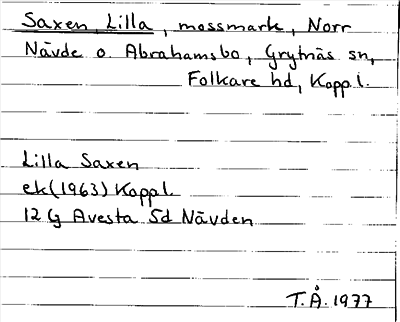 Saxen, Lilla, mossmark, Norr
Nävde o. Abrahamsbo, Grytnäs sn,
Folkare hd, Koppl.
Lilla Saxen
ek(1963) Koppl.
12 G Avesta 5d Nävden
T.Å. 1977